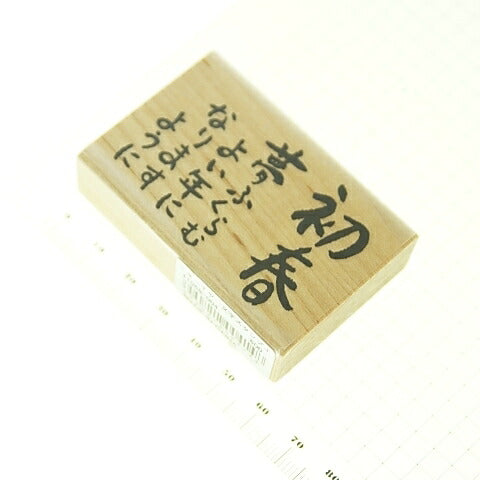 初春
ふくらむ
よい年に
なります
ように
40
50
60
70
80